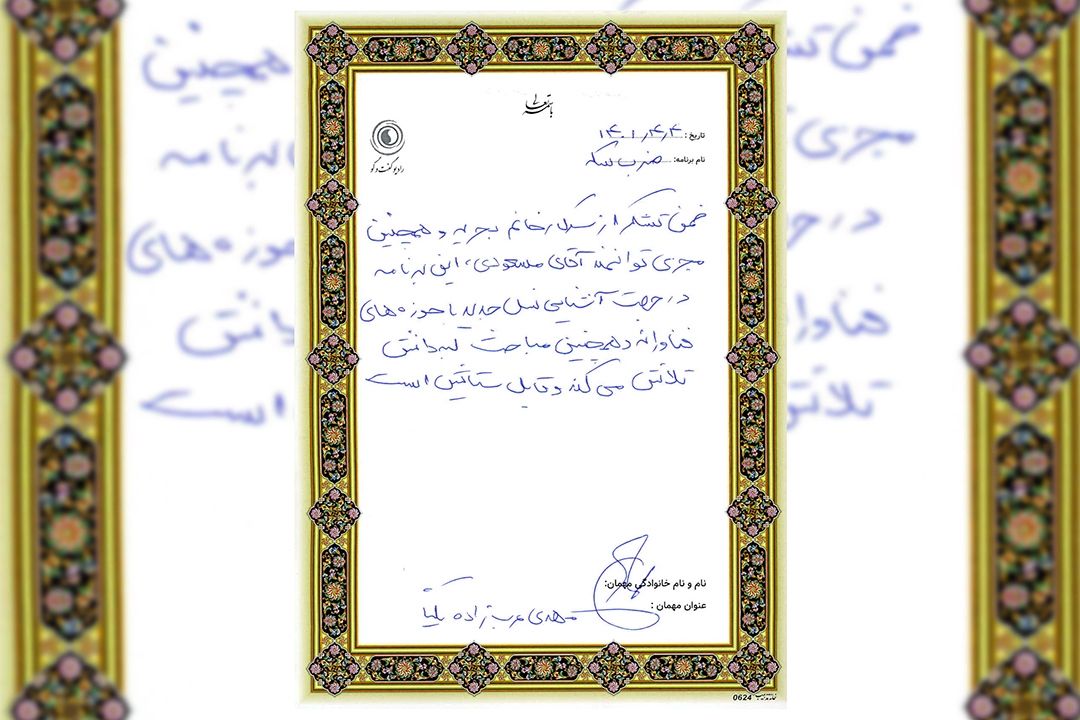 باسمه تعالی
رادیو گفت و گو
تاریخ: ۱۴۰۱,۴,۴
نام برنامه: ضرب سکه
ضمن تشکر از سرکار خانم و همچنین
مجری توانمند آقای مسعودی، این برنامه
در جهت آشنایی نسل جدید با حوزه های
فناورانه و همچنین مباحث
تلاش می کند و قابل ستایش است
نام و نام خانوادگی مهمان:
عنوان مهمان :
مهدی عرب زاده یکتا
0624